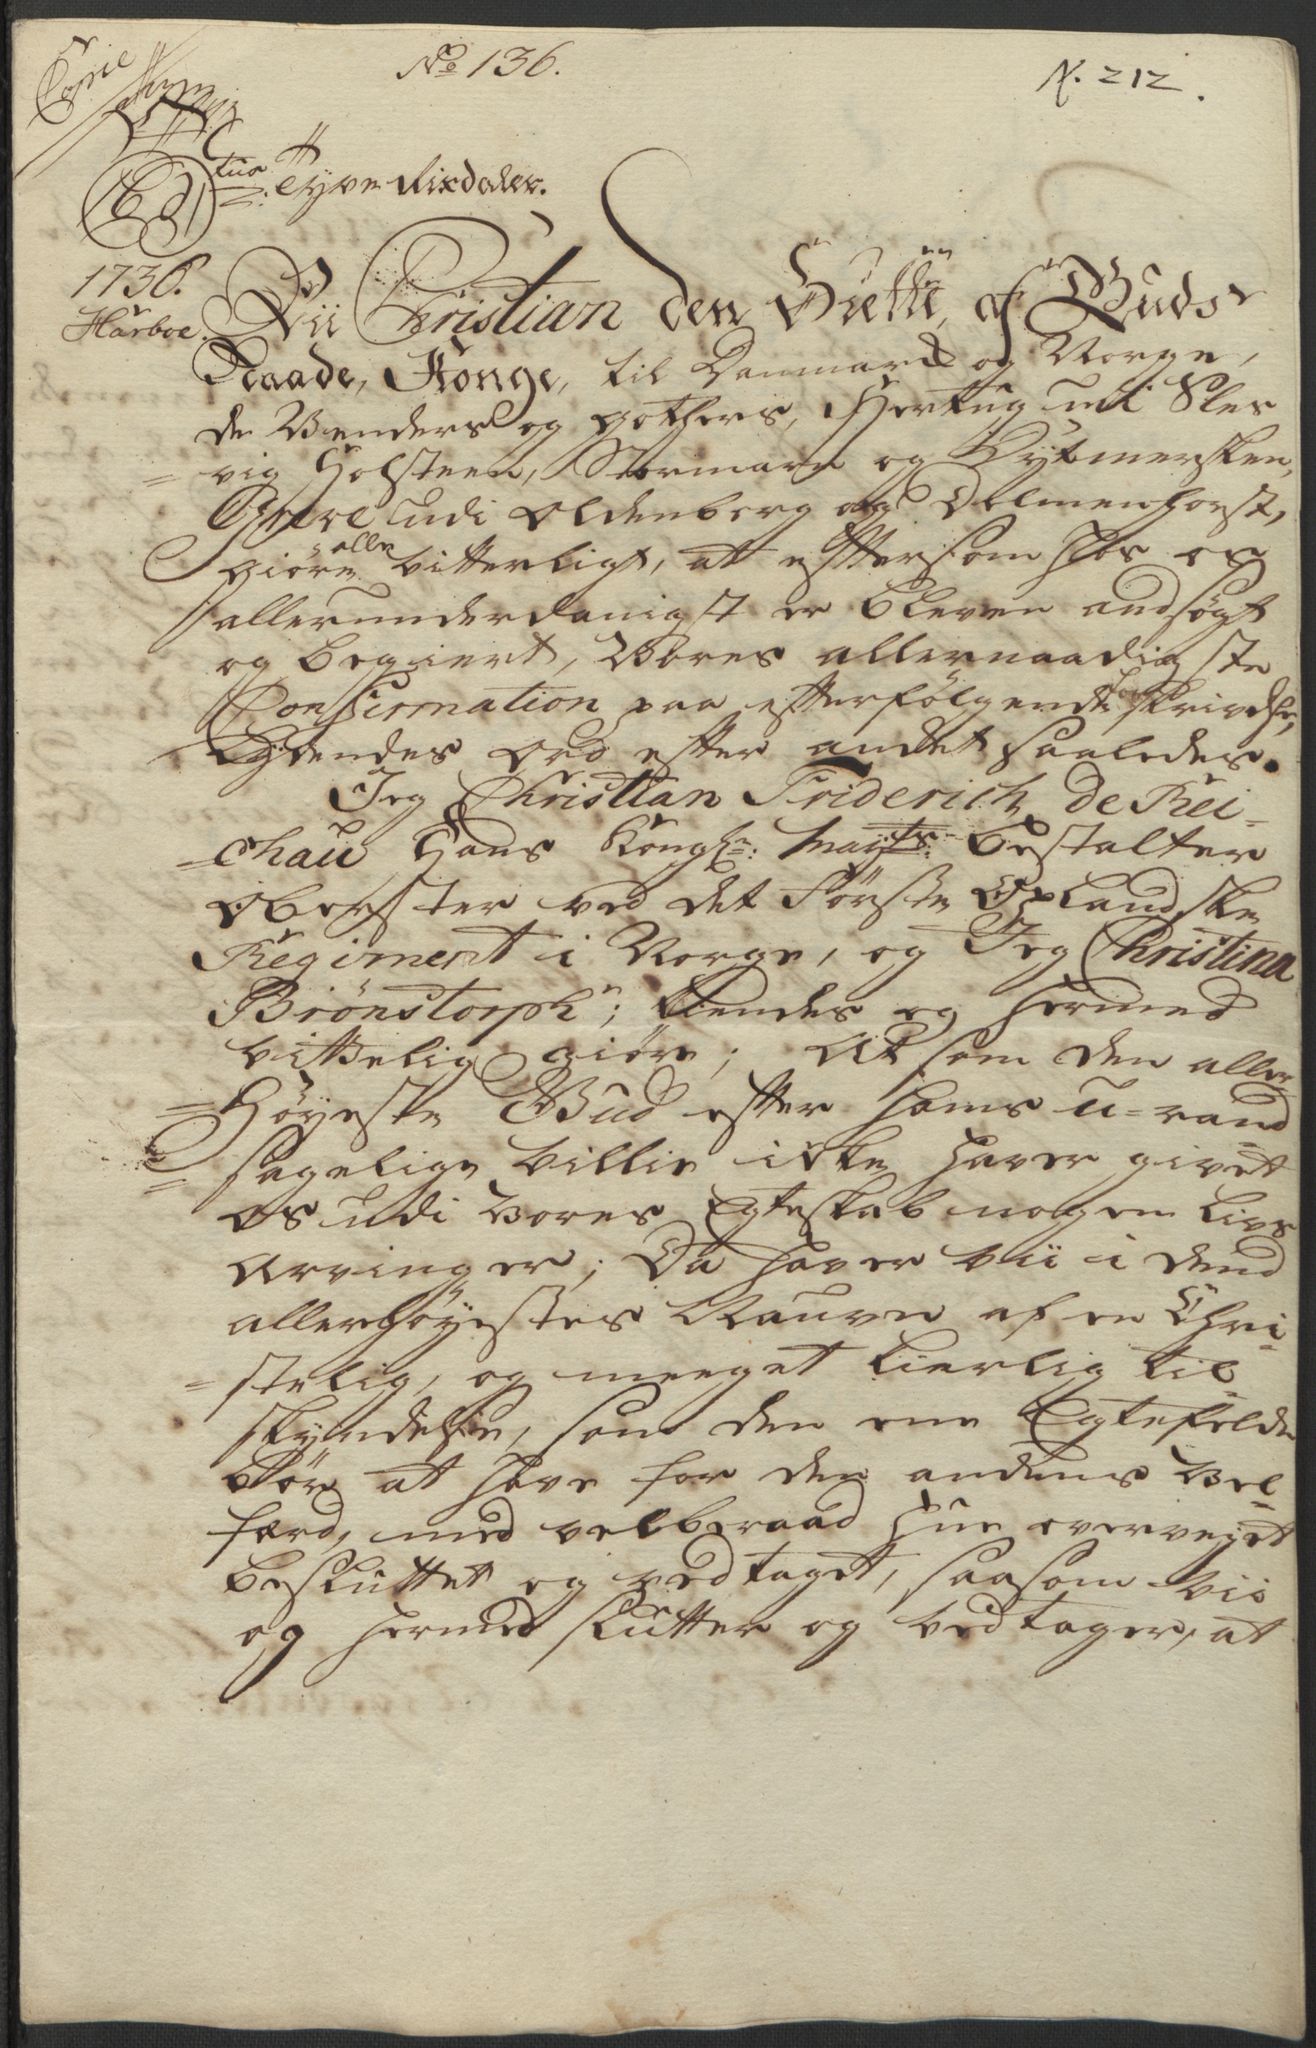 No 136.
N. 212.
Copie
C6
Tyve Rixdaler.
1736.
Harboe.
Vii Christian den Siette, af Guds
Naade, Konge, til Danmark og Norge,
de Venders og Gothers, Hertug udi Sles
= vig Holsteen, Stormarn og Dytmersken,
Greve udi Oldenborg og Delmenhorst,
giøre alle vitterligt, at eftersom hos os
allerunderdanigst er bleven andsøgt
og begiert, Vores allernaadigste
Confirmation paa efterfølgende skrivelse,
lydendes ord efter andet saaledes.
Jeg Christian Friderich de Rei-
= chau Hans Kongl: Mayts: bestalter
Oberster ved det Første Oplandske
Regiment i Norge, og Jeg Christina
Brönstorph; kiendes og hermed
vitterlig giøre; At som den aller
= Høyeste Gud efter hans u-rand
= sagelige villie ikke haver givet
os udi Vores Egteskab nogen Livs
Arvinger; Da haver vii i dend
allerhøyestes Nauvn af en Chri-
= stelig, og meeget kierlig til
skyndelse, som den eene Egtefelde
bør at have for den andens Vel-
færd, med velberaad Hue overveyet
besluttet og vedtaget, saasom vii
og hermed slutter og vedtager, at